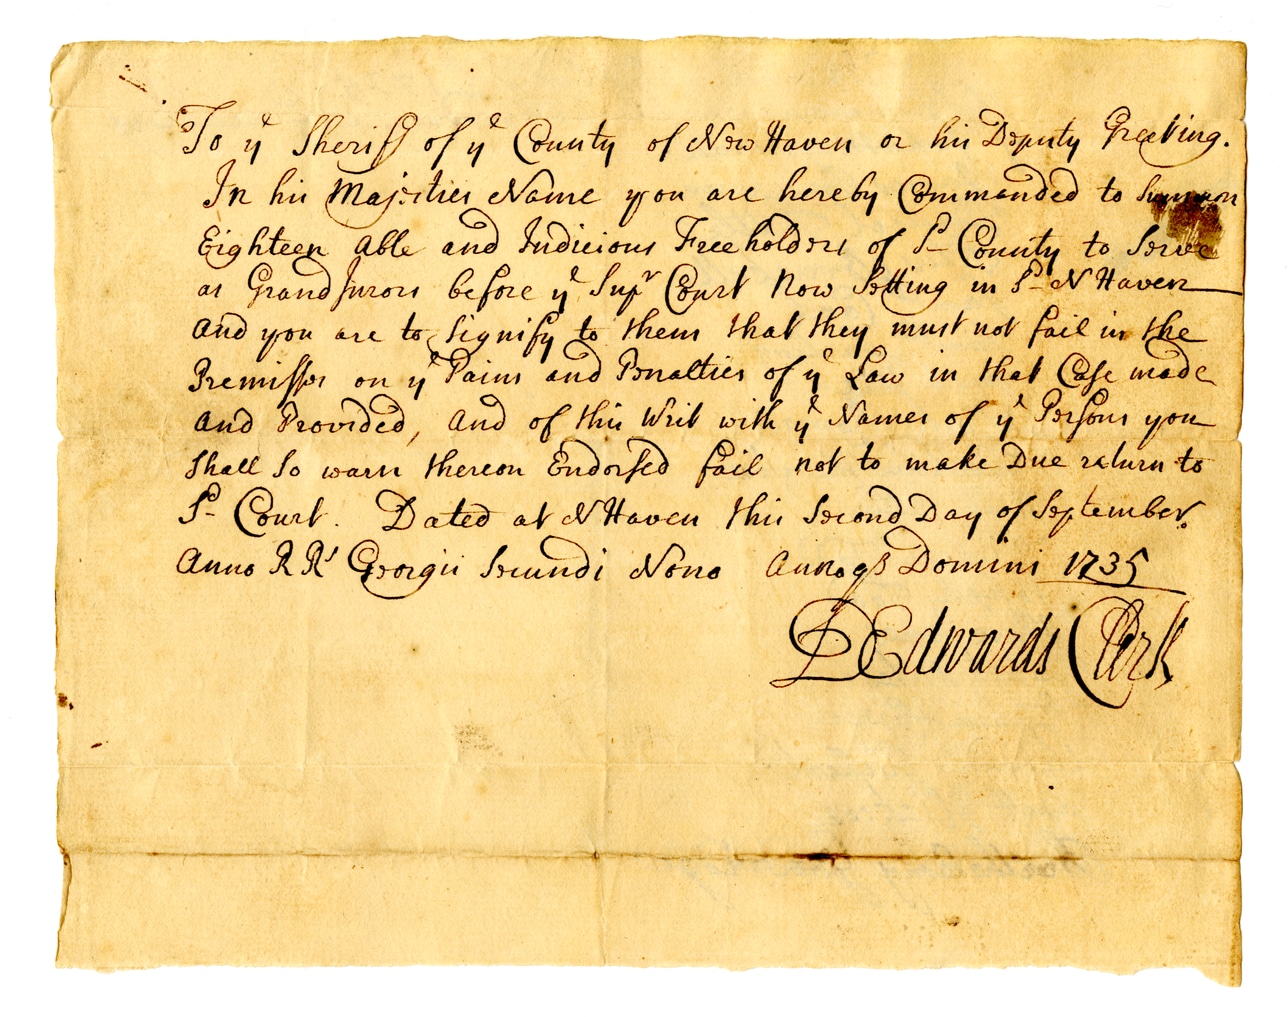 To yᵉ Sheriff of yᵉ County of New Haven or his Deputy Greeting.
In his Majesties Name you are hereby Commanded to Summon
Eighteen able and Judicious Freeholders of Sᵈ County to Serve
as Grand Jurors before yᵉ Supʳ Court Now Setting in Sᵈ N Haven
and you are to Signify to them that they must not fail in the
Premisses on yᵉ Pains and Penalties of yᵉ Law in that Case made
and Provided, and of this Writ with yᵉ Names of yᵉ Persons you
Shall So warn thereon Endorsed fail not to make Due return to
Sᵈ Court. Dated at N Haven this Second Day of September.
Anno R Rˢ Georgii Secundi Nono Annoqs Domini 1735
D Edwards Clerk